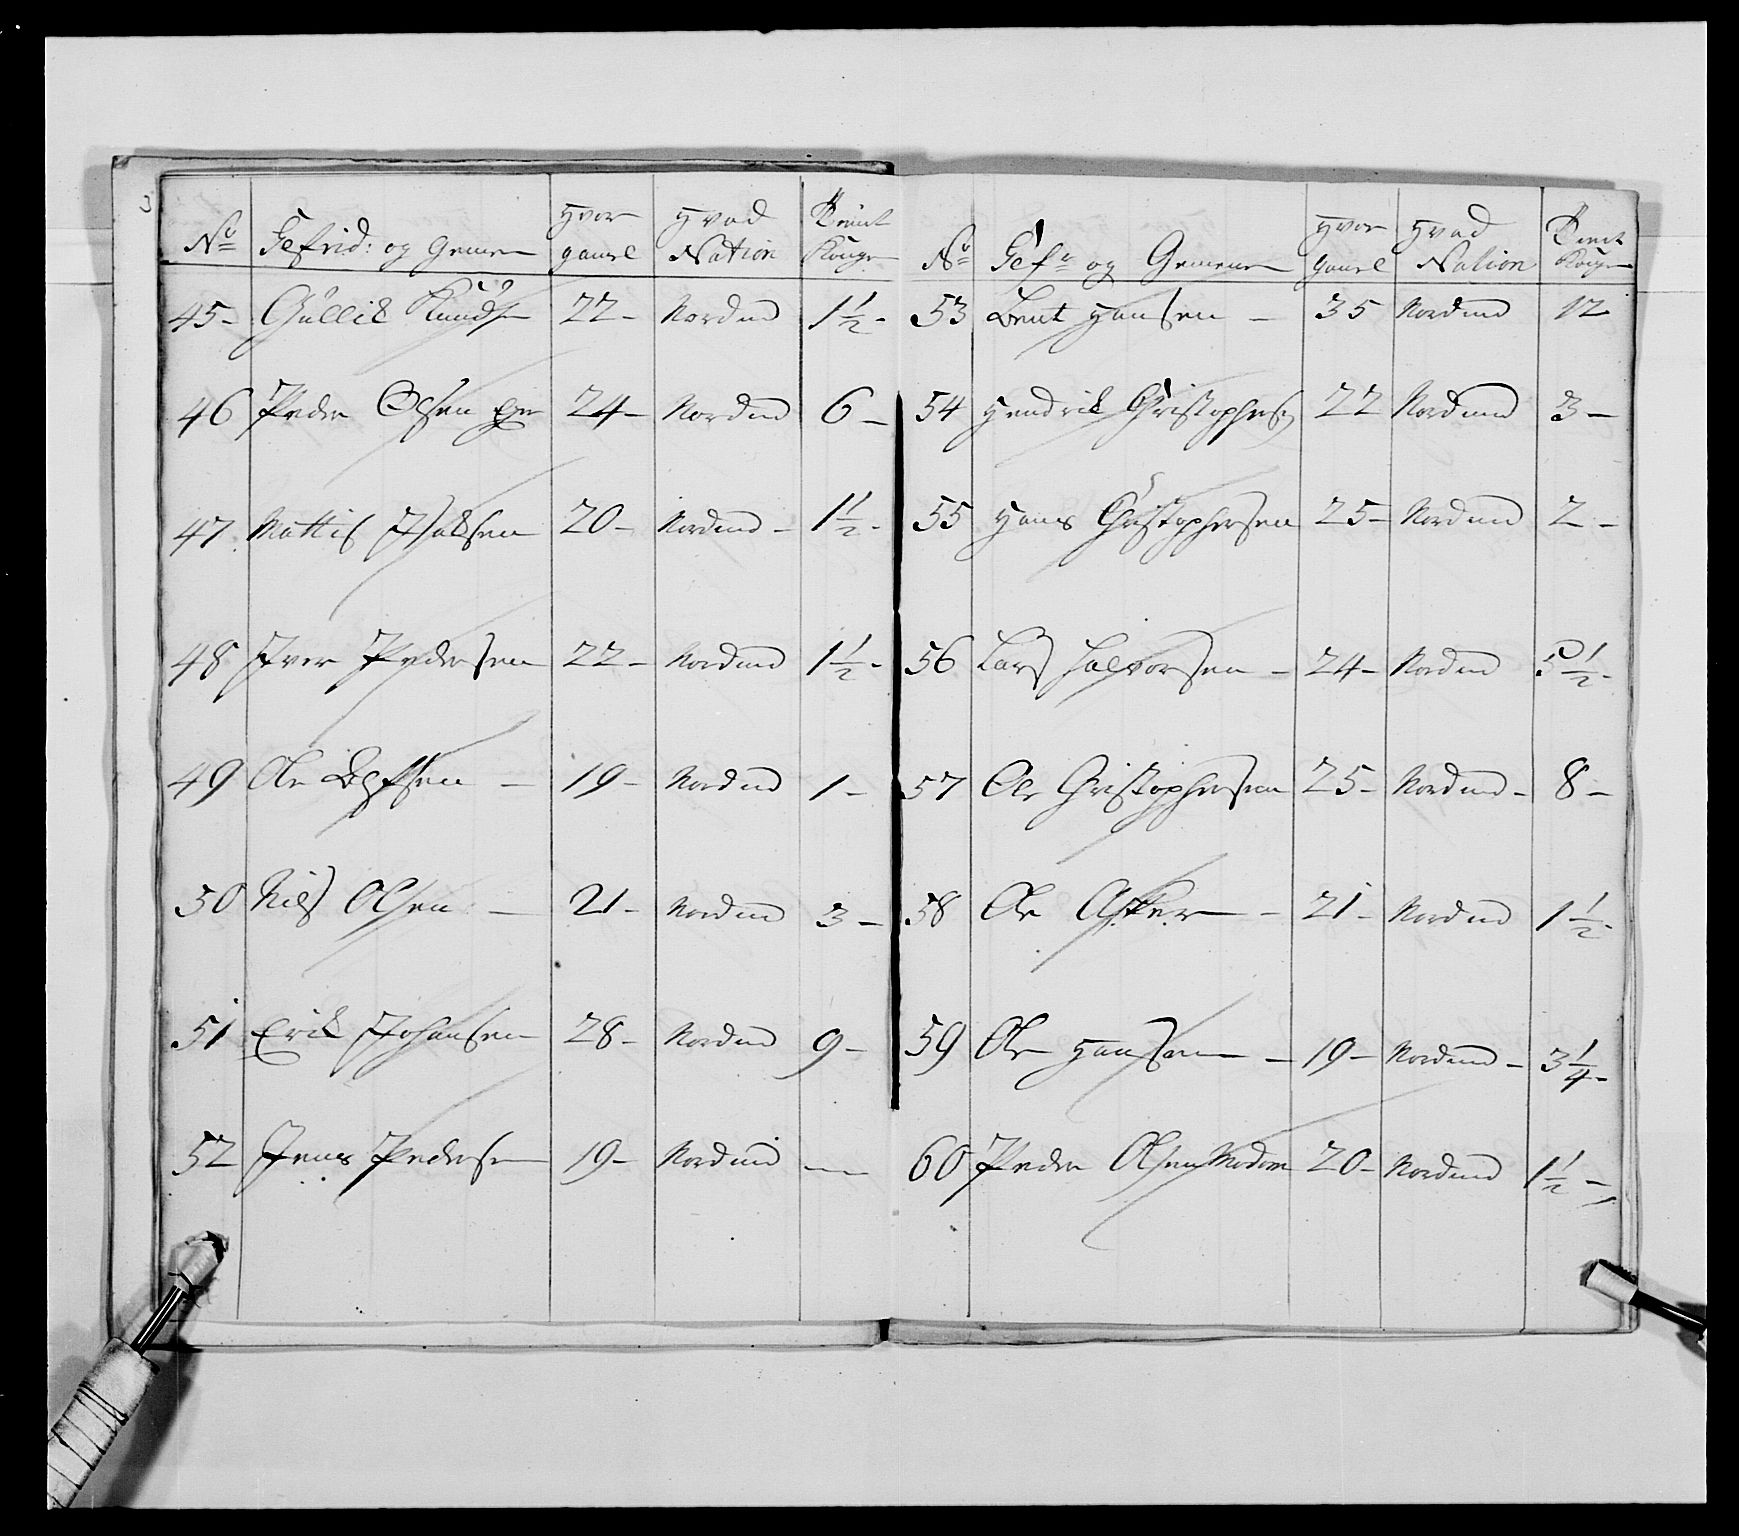 3
No Gefrid: og Gemene hvor gamel hvad Nation tient Konge
45- Gullik Knudsen 22- Nordmd 1 1/2-
46 Peder Olsen 24- Nordmd 6-
47. Mattis Isaksen 20- Nordmd- 1 1/2-
48 Iver Pedersen 22- Nordmd 1 1/2-
49 Ole - 19- Nordmd 1-
50 Nils Olsen - 21- Nordmd 3-
51 Erik Johansen 28- Nordmd 9-
52 Jens Pedersen 19- Nordmd -
No Gefr og Gemene hvor gamel hvad Nation tient Konge
53 Bent Hansen - 35 Nordmd 12
54 Hendrik Christophers 22 Nordmd 3-
55 Hans Christophersen 25- Nordmd 2-
56 Lars Halvorsen - 24- Nordmd 5 1/2-
57 Ole Christophersen 25- Nordmd- 8-
58 Ole Asker - 21- Nordmd 1 1/2-
59 Ole Hansen - 19- Nordmd- 3 1/4-
60 Peder Olsen Modom 20- Nordmd 1 1/2-